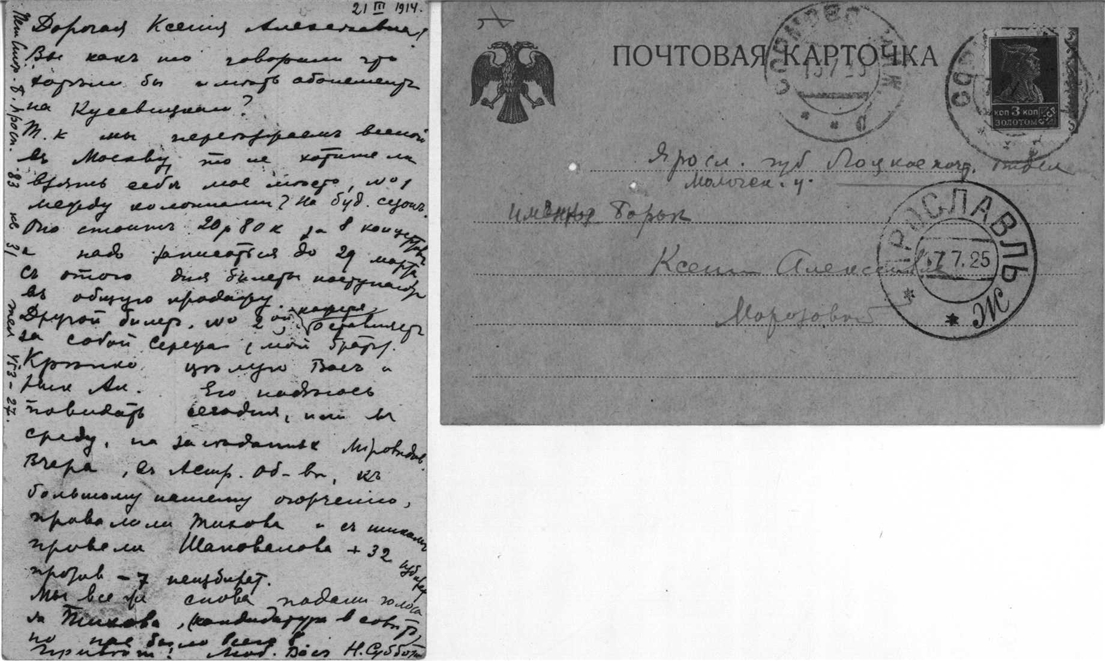 21 III 1914.
Дорогая Ксения Алексеевна!
Вы какъ то говорили что
хотѣли бы имѣть абонементъ
на Кусевицкаго?
Т.к мы переѣзжаемъ весной
въ Москву, то не хотите ли
взять себѣ мое мѣсто, №1
между колоннами? На буд. сезонъ.
Оно стоитъ 20р 80к за 8 концертовъ
а надо записаться до 29 марта
съ этого дня билеты поступаютъ
въ общую продажу.
Другой билет, №2 оставляетъ
за собой Сережа (мой братъ).
Крѣпко цѣлую Васъ и
Ник Ал. Его надѣюсь
повидать сегодня, или въ
среду, на засѣданіи Міровѣд.
Вчера, въ Астр. Об-вѣ, къ
большому нашему огорченію,
провалили Тихова и съ шикомъ
провели Шаповалова + 32 избират
против – 7 неизбират.
Мы все же снова подали голоса
за Тихова, (кандидатура в совѣтъ)
но нас было всего 8
Привѣт! Люб. Васъ Н.Суббот
Пет. Стор. Б. Просп. 83 кв 31 тел 153–27.
ПОЧТОВАЯ КАРТОЧКА
КОП 3 КОП
ЗОЛОТОМ
Яросл. губ почт. отдел
Молочн.
имение Борок
Ксении Алексеевне
Морозовой
ЯРОСЛАВЛЬ
7.7.25
Ж